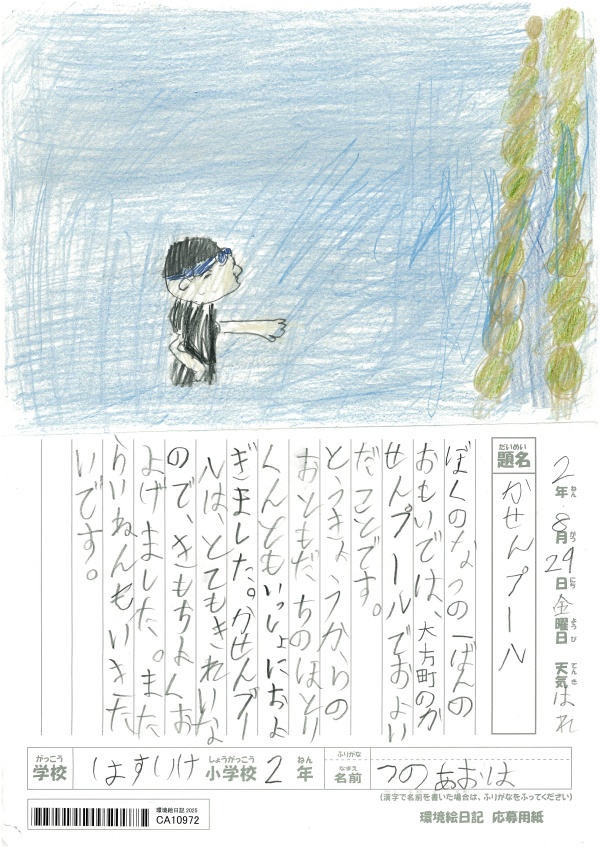 2年 8月29日 金曜日 天気 はれ
ねん がつ にち ようび てんき
だいめい
題名 かせんプール
ぼくのなつの一ばんの
おもいでは、大方町のか
せんプールでおよい
だことです。
とうきょうからの
おともだちのほとり
くんともいっしょにおよ
ぎました。かせんプー
ルは、とてもきれいな
ので、きもちよくお
よげました。また
らいねんもいきた
いです。
がっこう しょうがっこう ねん ふりがな なまえ
学校 はすいけ 小学校 2年 名前 つのあおは
(漢字で名前を書いた場合は、ふりがなをふってください)
環境絵日記 2025
CA10972
環境絵日記 応募用紙